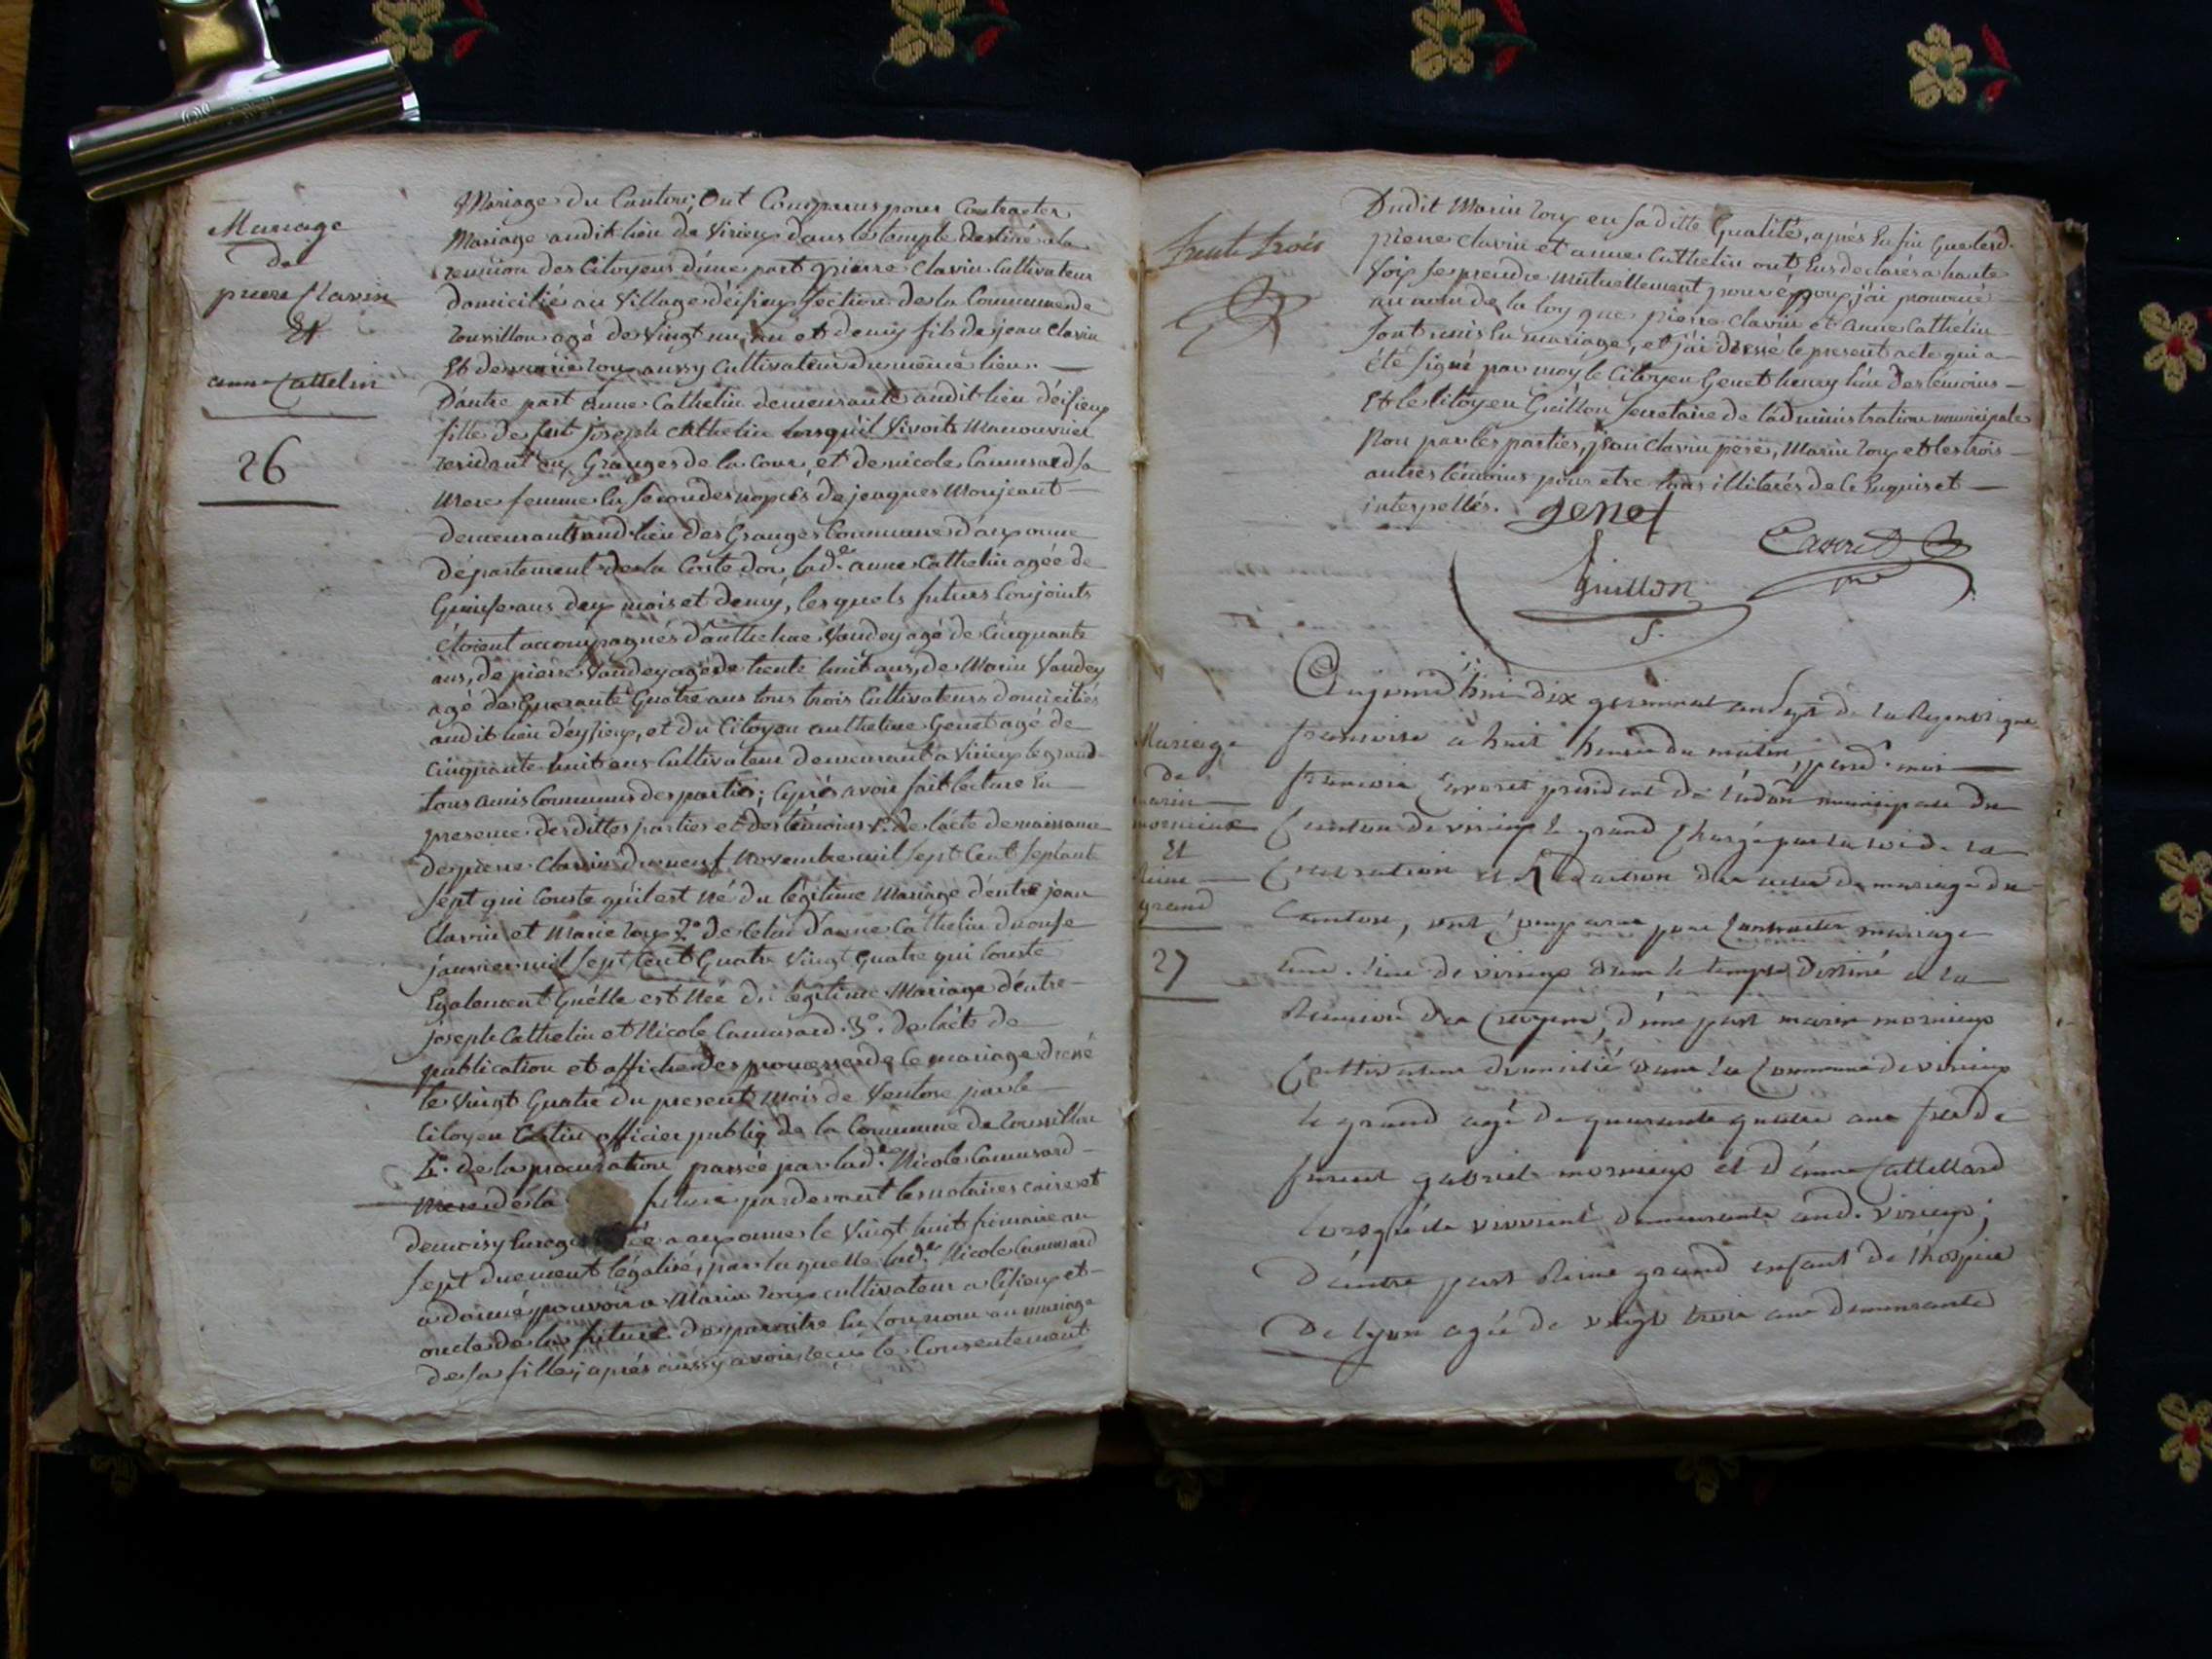 Mariage
de
pierre Clavin
Et
anne Cattelin
26
Mariage du Canton, Ont Comparus pour Contracter
Mariage audit lieu de Virieux dans le temple destiné a la
reunion des Citoyens d'une part pierre Clavin Cultivateur
domicilié au Village d'eifieux section de la Commune de
rousillon agé de Vingt un an et demy fils de jean Clavin
Et de marie roux aussy Cultivateur du même lieu.
D'autre part anne Cathelin demeurante audit lieu d'eifieux
fille de feut joseph Cathelin lorsqu'il Vivoit Manouvrier
residant aux Granges de la Cour, et de nicole Camusard sa
Mere femme En secondes nopces de jeaques Monjeant
demeurant aud. lieu des Granges Commune d'auxonne
département de la Coste dor lad.e anne Cathelin agée de
Quinse ans deux mois et demy, les quels futurs Conjoints
étoient accompagnés d'anthelme Vaudey agé de Cinquante
ans, de pierre Vaudey agé de trente huit ans, de Marin Vaudey
agé de Quarante Quatre ans tous trois Cultivateurs domiciliés
audit lieu d'eyfieux, et du Citoyen anthelme Genet agé de
Cinquante huit ans Cultivateur demeurant a Virieux le grand
tous amis Communs des parties; après avoir fait lecture En
presence desdittes parties et des témoins 1.° de l'acte de naissance
de pierre Clavin du neuf Novembre mil sept Cent septante
sept qui Conste qu'il est Né du légitime Mariage d'entre jean
Clavin et Marie roux 2° de Celui d'anne Cathelin du onse
janvier mil sept Cent Quatre Vingt Quatre qui Conste
Egalement Qu'elle est Née du légitime Mariage d'entre
joseph Cathelin et Nicole Camusard. 3°. de l'acte de
publication et affiche des promesses de Ce mariage dressé
le Vingt Quatre du present mois de Ventose par le
Citoyen officier publiq de la Commune de rousillon
4°. de la procuration passée par lad.e Nicole Camusard
Mere de la future par devant les notaires et
a auxonne le Vingt huit frimaire an
sept duement légalisé, par laquelle lad.e Nicole Camusard
a donné pouvoir a Marin roux cultivateur a Eifieux et
oncle de la future de paroitre En son nom au mariage
de sa fille; après aussy avoir recue le Consentement
trente trois
Dudit Marin roux en sa ditte Qualité, après En fin Que lesd.
pierre clavin et anne Cathelin ont Eus declarés a haute
Voix se prendre Mutuellement pour époux, j'ai prononcé
au nom de la loy que pierre Clavin et Anne Cathelin
sont unis En mariage, et j'ai dressé le present acte qui a
été signé par moy le Citoyen Genet l'un des témoins
Et le Citoyen Guillon secretaire de l'administration municipale
Non par les parties, jean Clavin pere, Marin roux et les trois
autres témoins pour etre tous illiterés de ce Enquis et
interpellés.
genet
Caveret
Guillon
S.
Mariage
de
marin
mornieux
Et
Reine
grand
27
Aujourd'hui dix germinal an sept de la Republique
françoise a huit heures du matin, pard. moi
francois Caveret president de l'adon municipale du
Canton de virieux le grand Chargé par la loi de la
Celebration et Redaction des actes de mariage du
Canton, ont Comparus pour Contracter mariage
lieu de virieux dans le temple destiné a la
Reunion des Citoyens, d'une part marin mornieux
Cultivateur domicilié dans la Commune de virieux
le grand agé de quarante quatre ans fils de
gabriel mornieux et d'anne Catellard
lorsqu'ils vivoient demeurants aud. virieux;
D'autre part Reine grand enfant de l'hospice
De lyon agée de vingt trois ans demeurante